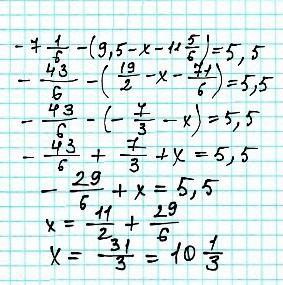 - 7 1/6 - (9,5 - x - 11 5/6) = 5,5
- 43/6 - (19/2 - x - 71/6) = 5,5
- 43/6 - (- 7/3 - x) = 5,5
- 43/6 + 7/3 + x = 5,5
- 29/6 + x = 5,5
x = 11/2 + 29/6
x = 31/3 = 10 1/3